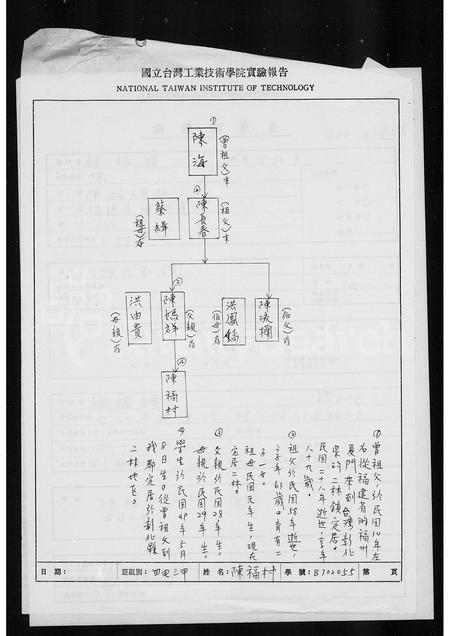 國立台灣工業技術學院實驗報告
NATIONAL TAIWAN INSTITUTE OF TECHNOLOGY
①
陳海
(曾祖父)末
②
陳長春
(祖父)末
蔡緞
(祖母)存
陳流欄
(伯父)存
洪鳳
(伯母)存
③
陳媽祥
(父親)存
洪由貴
(母親)存
④
陳福村
①曾祖父於民國10年左
右從福建省的福州
厦門來到台灣彰化
縣的二林鎮定居。
民國二十八年逝世,享年
八十九歲。
②祖父於民國58年逝世,
享年63歲。育有二
子一女。
祖母民國元年生,現在
定居二林。
③父親於民國28年生。
母親於民國29年生。
④學生於民國49年5月
8日生。從曾祖父到
我都定居於彰化縣
二林地區。
日期: 班組別:四電三甲 姓名:陳福村 學號:B722055 第 頁